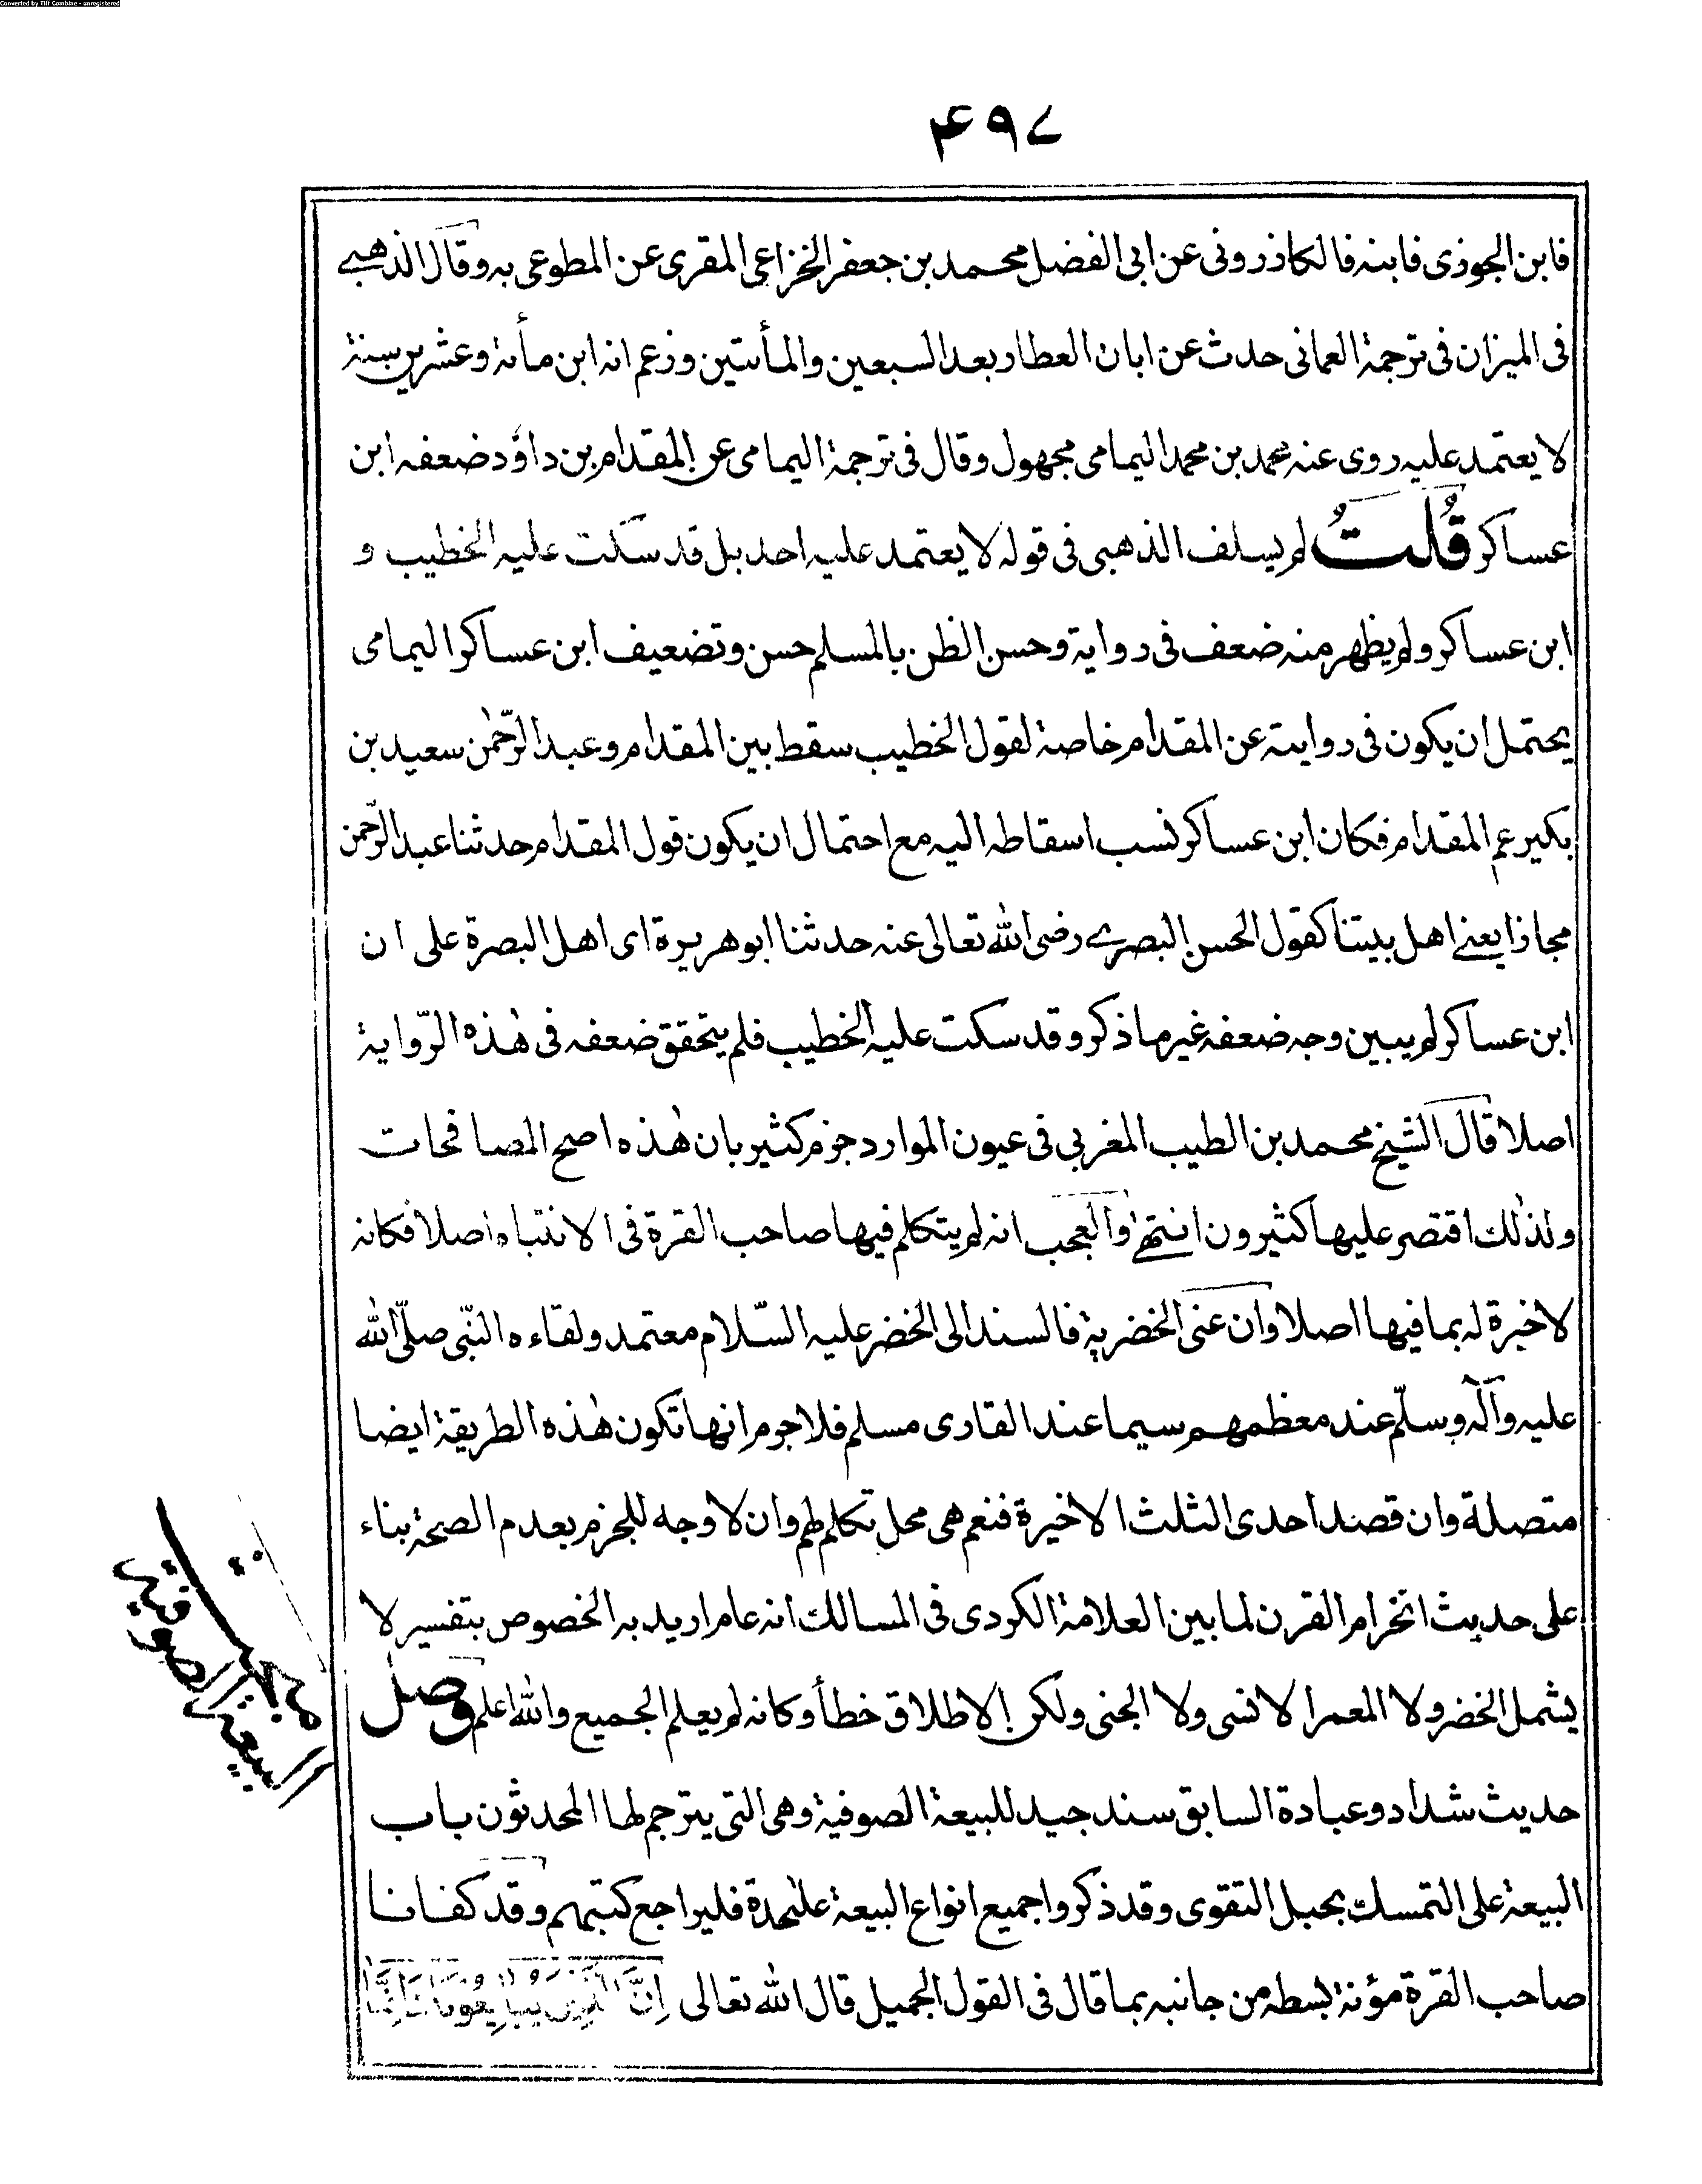 Converted by Tiff Combine - unregistered
۴۹۷
فابن الجوزى فابنه فالكازرونى عن ابى الفضل محمد بن جعفر الخزاعى المقرى عن المطوعى به وقال الذهبے
فى الميزان فى ترجمة العمانى حدث عن ابان العطار بعد السبعين والمأتين وزعم انه ابن مأئة وعشرين سنة
لا يعتمد عليه روى عنه محمد بن محمد اليمامى مجهول وقال فى ترجمة اليمامى عن المقدام بن داؤد ضعفه ابن
عساكر قُلتُ لم يسلف الذهبى فى قوله لا يعتمد عليه احد بل قد سكت عليه الخطيب و
ابن عساكر ولم يظهر منه ضعف فى رواية وحسن الظن بالمسلم حسن وتضعيف ابن عساكر اليمامى
يحتمل ان يكون فى روايته عن المقدام خاصة لقول الخطيب سقط بين المقدام وعبد الرّحمٰن سعيد بن
بكير عم المقدام فكان ابن عساكر نسب اسقاطه اليه مع احتمال ان يكون قول المقدام حدثنا عبد الرّحمن
مجازا يعنے اهل بيتنا كقول الحسن البصرے رضى الله تعالى عنه حدثنا ابو هريرة اى اهل البصرة على ان
ابن عساكر لم يبين وجه ضعفه غير ما ذكر وقد سكت عليه الخطيب فلم يتحقق ضعفه فى هٰذه الرّواية
اصلا قال الشيخ محمد بن الطيب المغربى فى عيون الموارد جزم كثير بان هٰذه اصح المصافحات
ولذٰلك اقتصر عليها كثيرون انتهٰى والعجب انه لم يتكلم فيها صاحب القرة فى الانتباه اصلا فكانه
لا خبرة له بما فيها اصلا وان عنى الخضرية فالسند الى الخضر عليه السّلام معتمد ولقاءه النّبى صلّى الله
عليه وآله وسلّم عند معظمهم سيما عند القارى مسلم فلا جرم انها تكون هٰذه الطريقة ايضا
متصلة وان قصد احدى الثلث الاخيرة فنعم هى محل تكلم لهم وان لا وجه للجزم بعدم الصحة بناء
على حديث انخرام القرن لما بين العلامة الكردى فى المسالك انه عام اريد به الخصوص بتفسير لا
يشمل الخضر ولا المعمر الانسى ولا الجنى ولكن الاطلاق خطأ وكانه لم يعلم الجميع والله اعلم وصل
حديث شداد وعبادة السابق سند جيد للبيعة الصوفية وهى التى يترجم لها المحدثون باب
البيعة على التمسك بحبل التقوى وقد ذكروا جميع انواع البيعة علٰحدة فليراجع كتبهم وقد كفانا
صاحب القرة مؤنة بسطه من جانبه بما قال فى القول الجميل قال الله تعالى اِنَّ الَّذِيْنَ يُبَايِعُوْنَكَ اِنَّمَا
مبحث
البيعة الصوفية